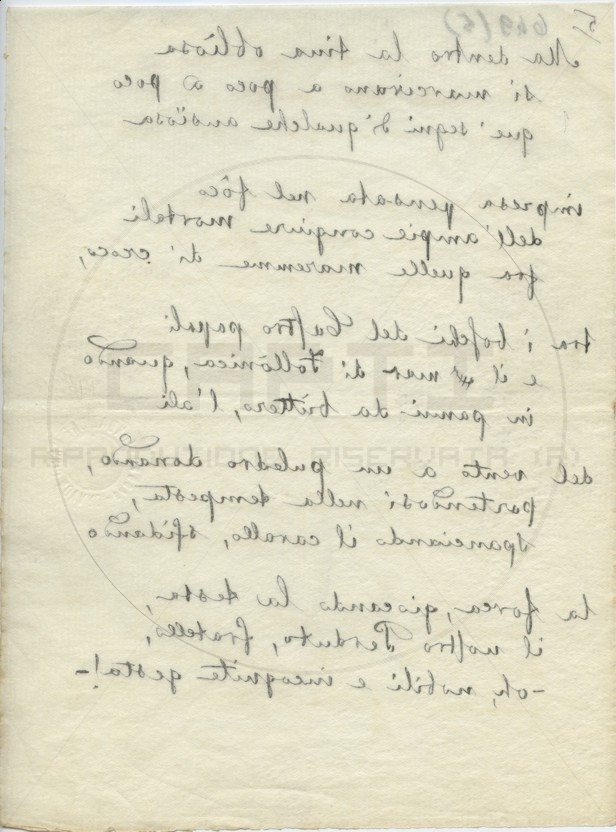 5/
649 (5)
Ma dentro la tina obliosa
si marcivano a poco a poco
que' segni di qualche ansïosa
impresa pensata nel fôco
dell'ampie congiure mortali
fra quelle maremme di croco,
tra i boschi del Castro papali
e il mar di Follònica, quando
in panni da bùttero, l'ali
del vento a un puledro donando,
partendosi nella tempesta,
spanciando il cavallo, sfidando
la forca, giocando la testa,
il nostro Perduto, fratello,
-oh, nobili e incognite gesta!-
RIPRODUZIONE RISERVATA (R)